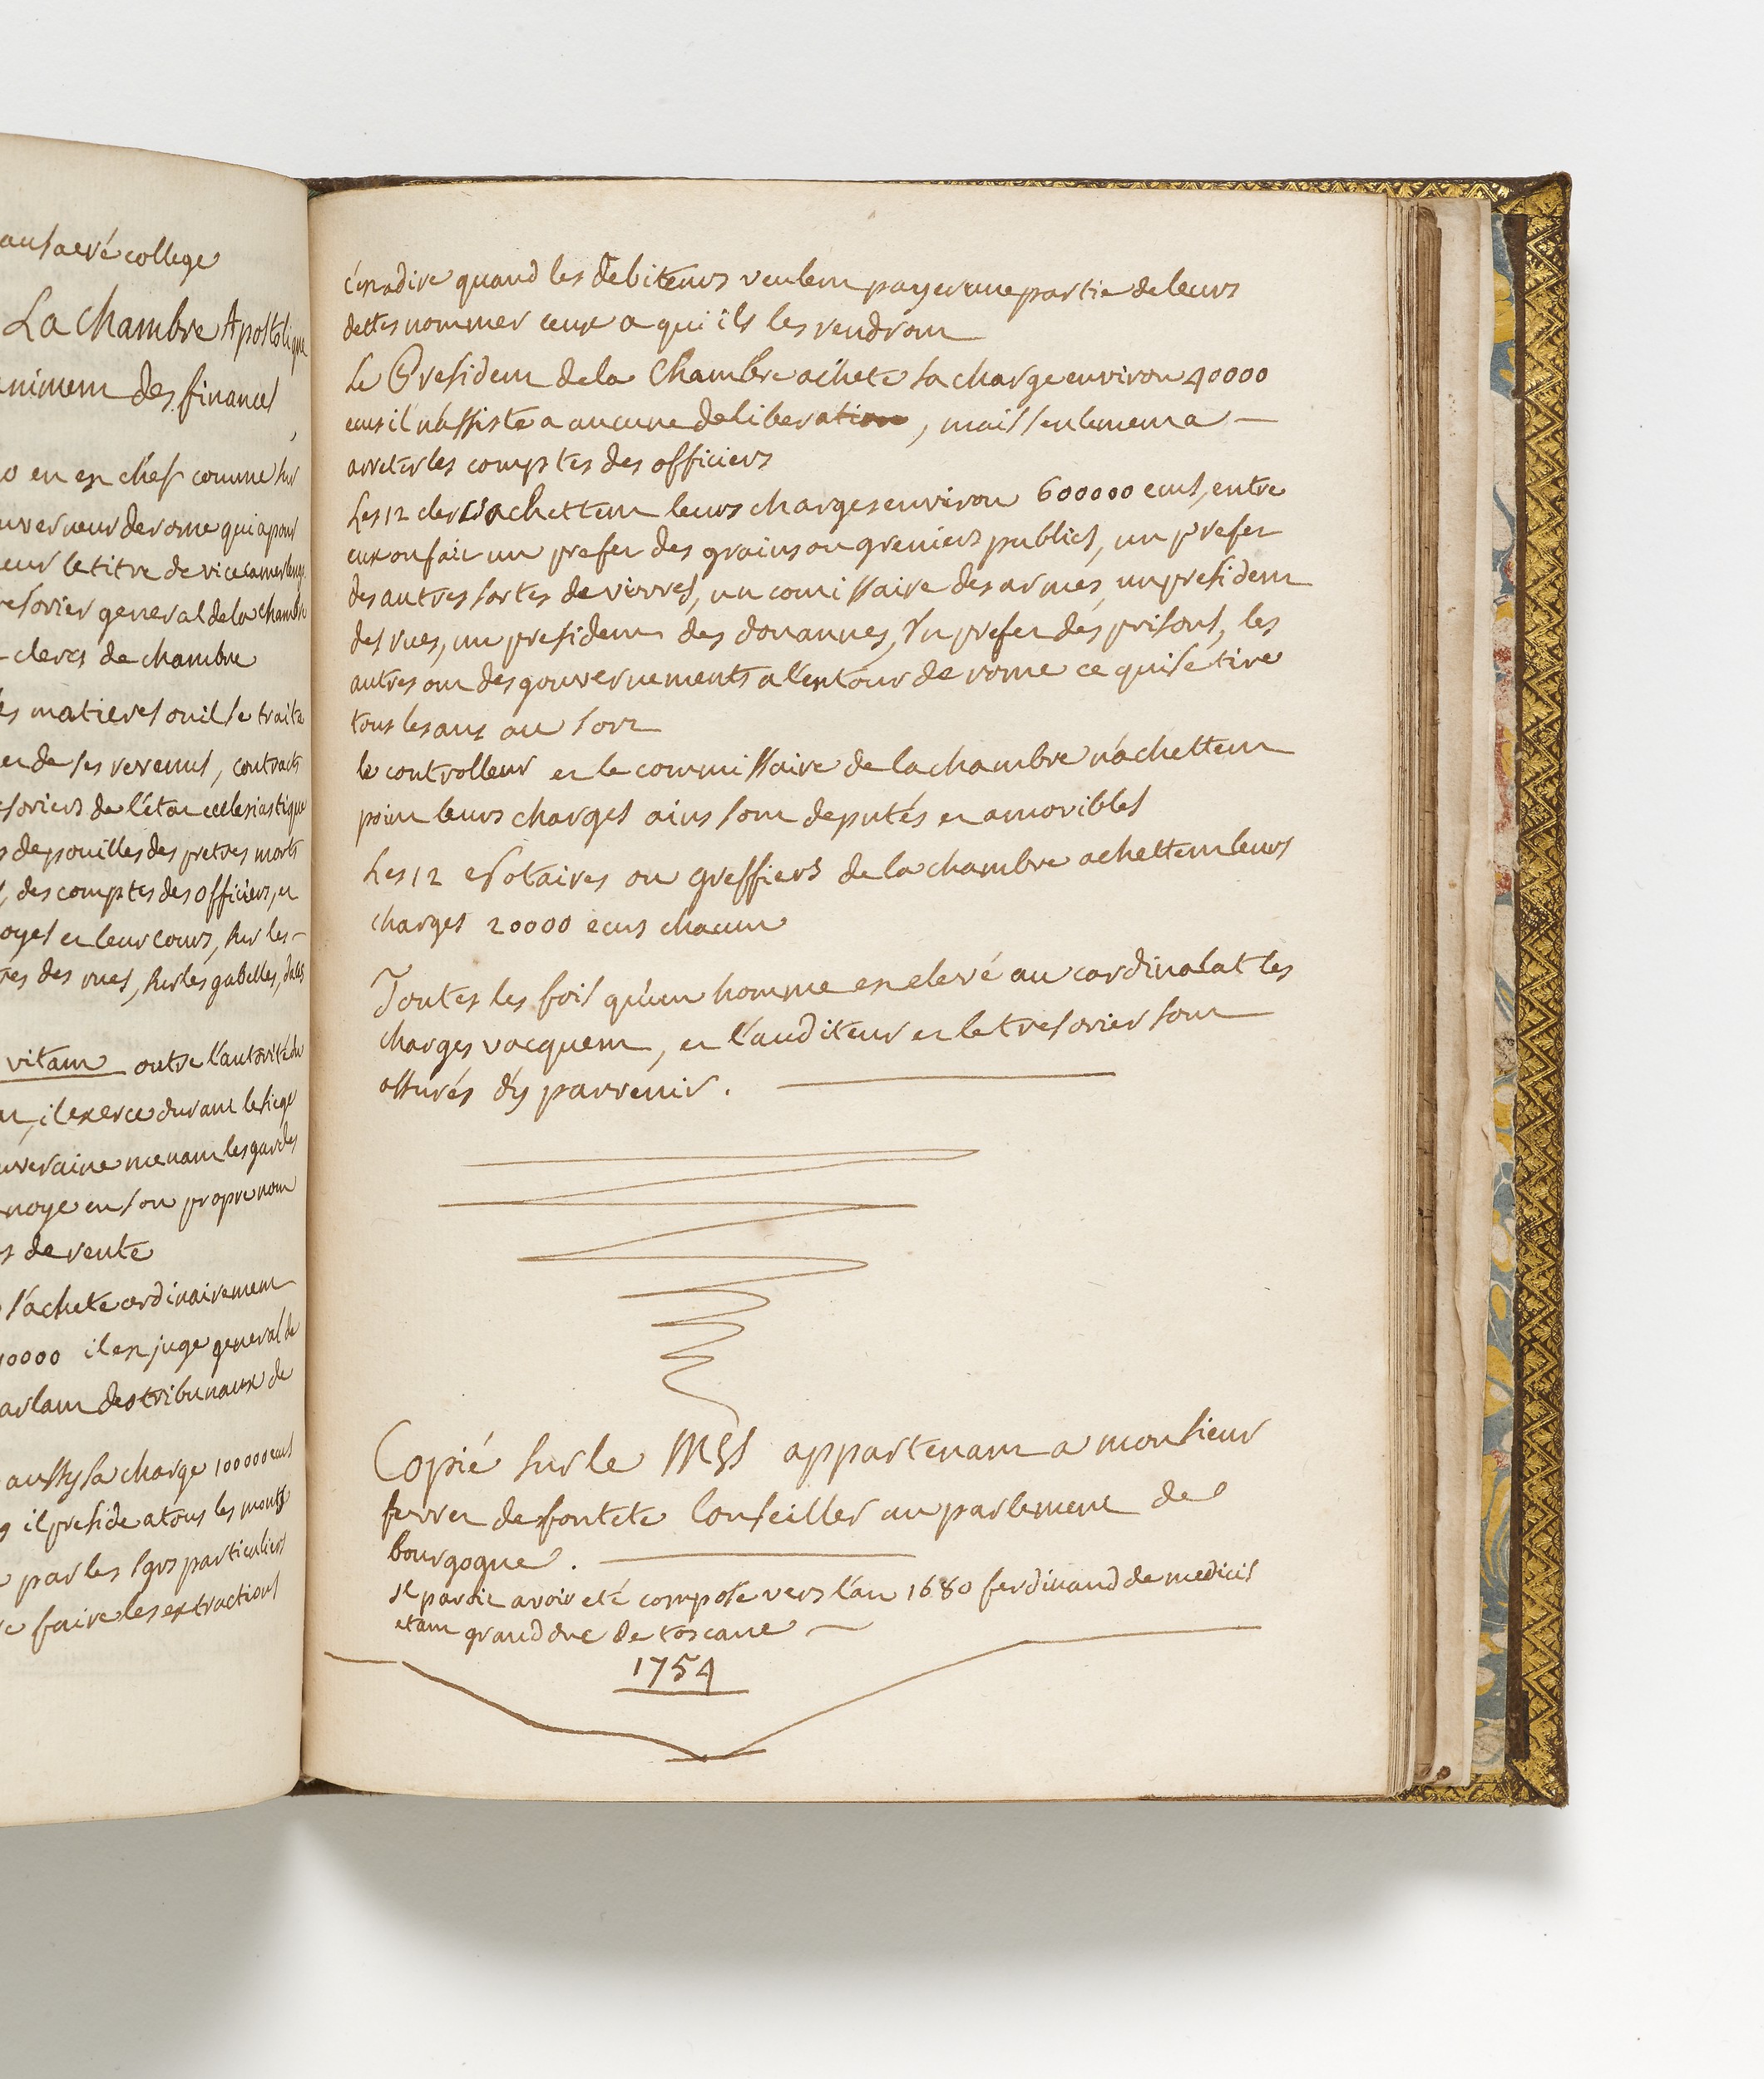 au sacré college
La Chambre Apostolique
des finances
en est chef comme sur
gouverneur de rome qui a pour
leur le titre de vicecamerlingue
tresorier general de la chambre
clercs de chambre
les matieres ou il se traite
et de ses revenus, contracts
tresoriers de l'état ecclesiastique
depouilles des pretres morts
, des comptes des officiers, et
et leur cours, sur les -
des rues, sur les gabelles,
vitam outre l'autorité du
il exerce durant le siege
souveraine menant les gardes
monnoye en son propre nom
de rente
l'achete ordinairement
il est juge general de
parlant des tribunaux de
aussy sa charge 100000 ecus
il preside a tous les monts
par les sgrs particuliers
faire les extractions
c'est a dire quand les debiteurs veulent payer une partie de leurs
dettes nommer ceux a qui ils les rendront
Le President de la Chambre achete sa charge environ 40000
ecus il n'assiste a aucune deliberation, mais seulement a —
arreter les comptes des officiers
Les 12 clercs achettent leurs charges environ 600000 ecus, entre
eux on fait un prefet des grains ou greniers publics, un prefet
des autres sortes de vivres, un comissaire des armes, un president
des rues, un president des douannes, Un prefet des prisons, les
autres ont des gouvernements a l'entour de rome ce qui se tire
tous les ans au sort
le controlleur et le commissaire de la chambre n'achettent
point leurs charges ains sont deputés et amovibles
Les 12 Notaires ou greffiers de la chambre achettent leurs
charges 20000 ecus chacun
Toutes les fois qu'un homme est elevé au cardinalat les
charges vacquent, et l'auditeur et le tresorier sont
assurés d'y parvenir.
Copié sur le MSS appartenant a monsieur
fevret de fontete Conseiller au parlement de
bourgogne.
Il paroit avoir eté composé vers l'an 1680 ferdinand de medicis
etant grand duc de toscane
1754